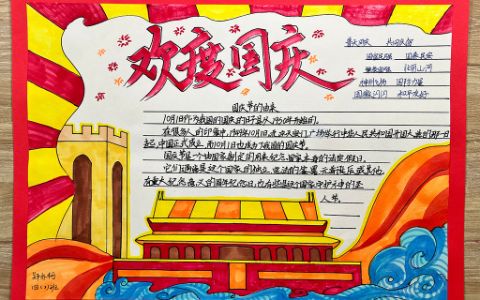 欢度国庆
普天同庆 共同庆贺
国富民强 国泰民安
繁荣富强 壮丽山河
神州飞扬 国防力量
国徽闪闪 和平友好
国庆节的由来
10月1日作为我国的国庆日子是从1950年开始的。
在很多人的印象中,1949年10月1日,在北京天安门广场举行中华人民共和国开国大典的那一日
起,中国正式成立,而10月1日也成为了我国的国庆。
国庆节是个由国家制定的用来纪念国家本身的法定假日。
它们通常是这个国家的独立、宪法的签署、元首诞辰或其他
有重大纪念意义的周年纪念日,也有些是这个国家守护神的圣
人节。